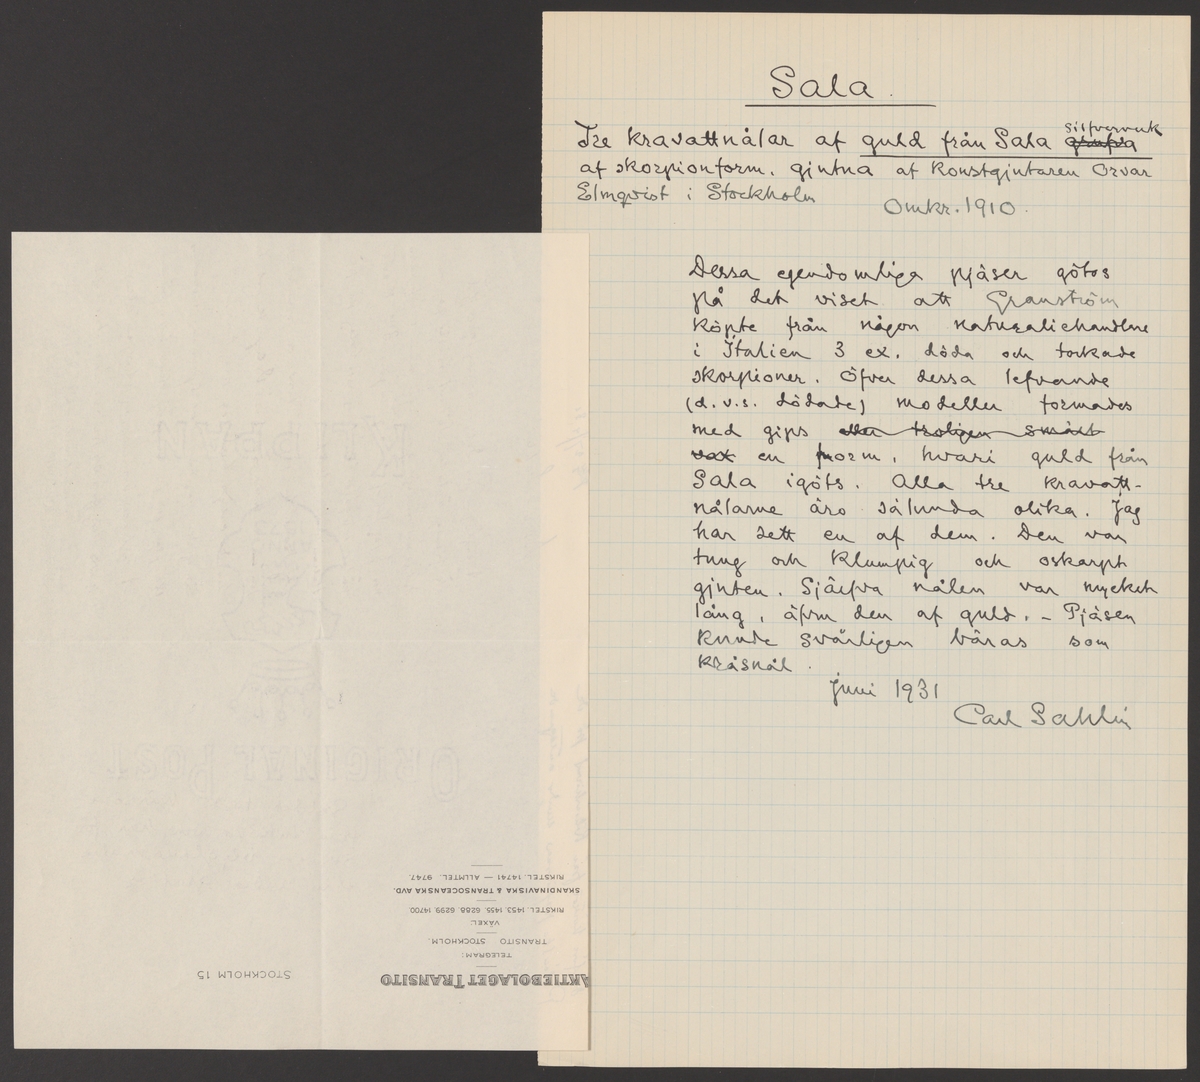 Sala.
silfververk
Tre kravattnålar af guld från Sala grufva
af skorpionform, gjutna af konstgjutaren Orvar
Elmqvist i Stockholm
Omkr. 1910.
Dessa egendomliga pjäser götos
på det viset att Granström
köpte från någon naturaliehandlare
i Italien 3 ex. döda och torkade
skorpioner. Öfver dessa lefvande
(d.v.s. dödade) modeller formades
med gips eller troligen smält
vax en form, hvari guld från
Sala igöts. Alla tre kravatt-
nålarne äro sålunda olika. Jag
har sett en af dem. Den var
tung och klumpig och oskarpt
gjuten. Själfva nålen var mycket
lång, äfven den af guld. – Pjäsen
kunde svårligen bäras som
kråsnål.
juni 1931
Carl Sahlin
AKTIEBOLAGET TRANSITO
STOCKHOLM 15
TELEGRAM:
TRANSITO STOCKHOLM.
VÄXEL:
RIKSTEL. 1453. 1455. 6288. 6299. 14700.
SKANDINAVISKA & TRANSOCEANSKA AVD.
RIKSTEL. 14741 — ALLMTEL. 9747.
ORIGINAL POST